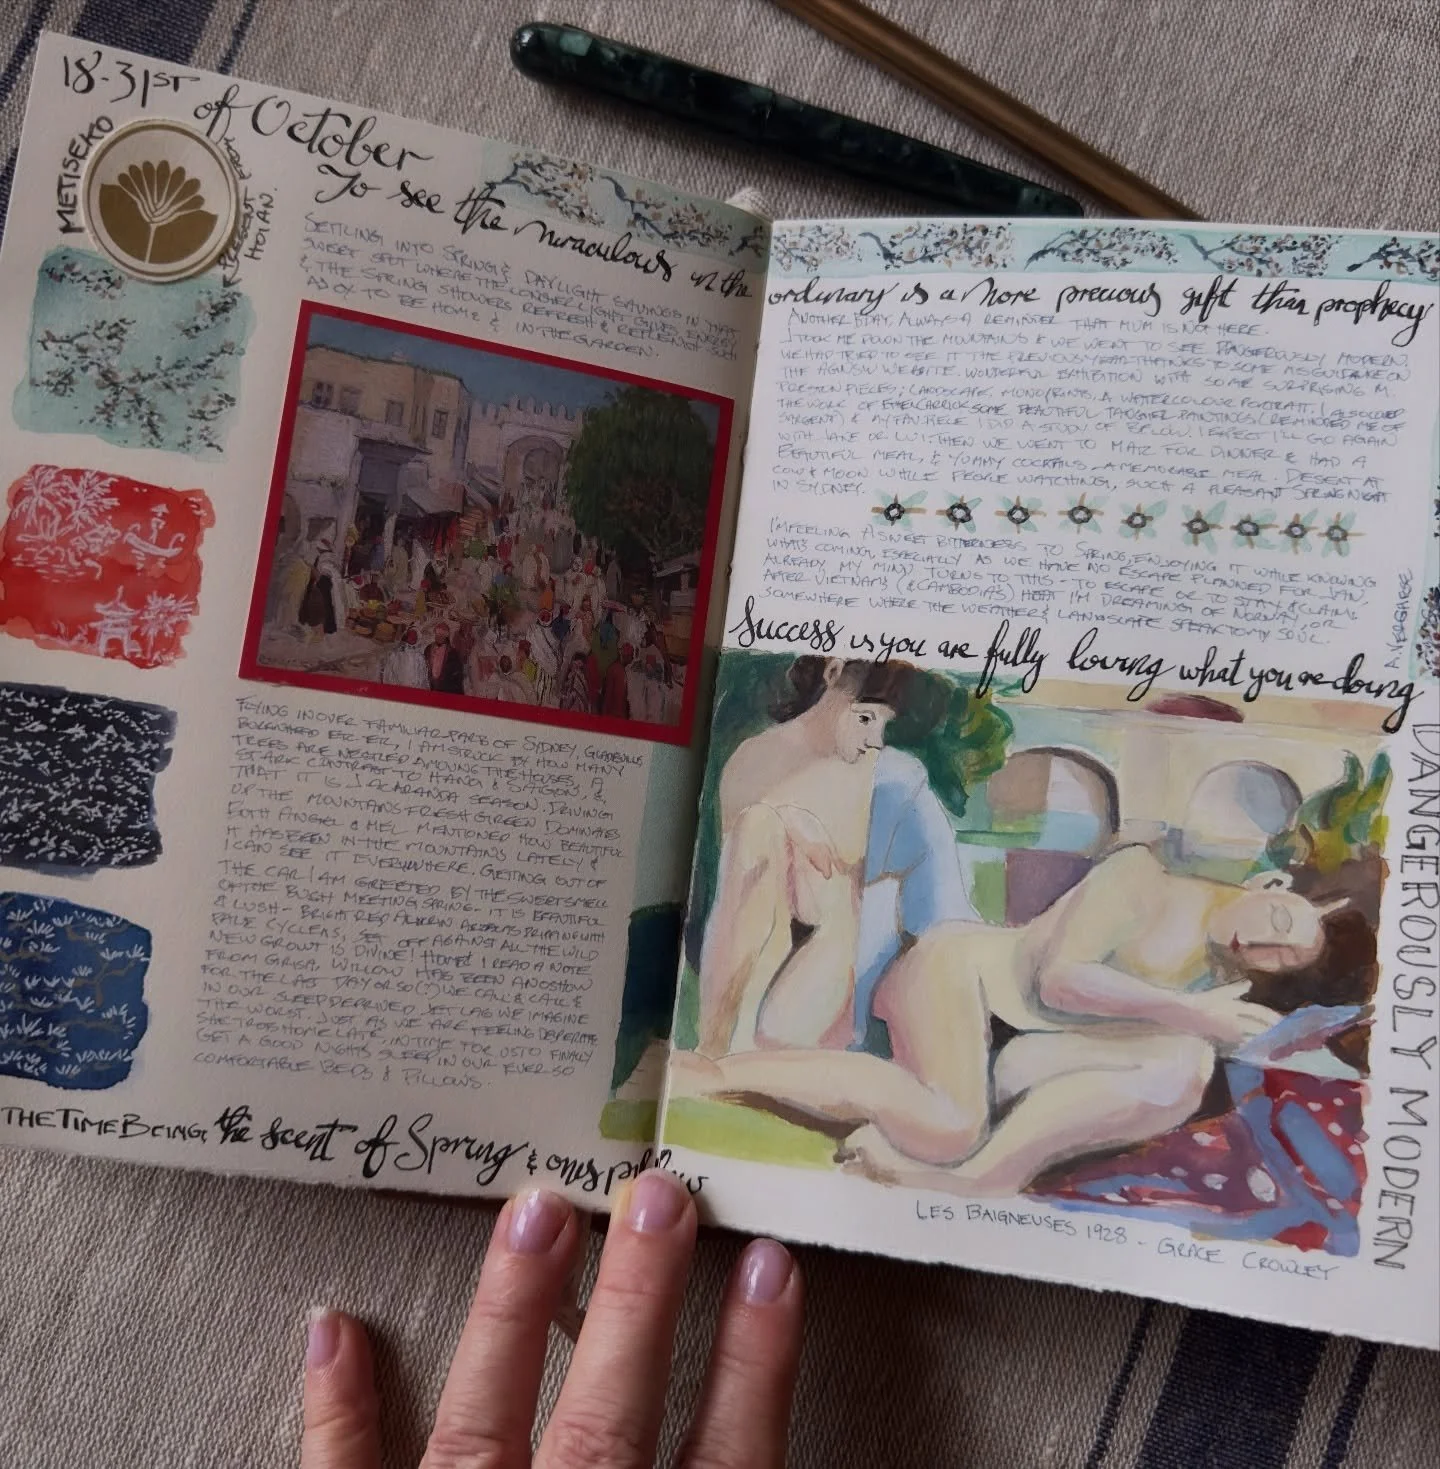 18-31ST of October
METISEKO
PRESENT FROM
HOI AN.
To see the miraculous in the
SETTLING INTO SPRING & DAYLIGHT SAVINGS IN THAT
SWEET SPOT WHERE THE LONGER LIGHT GIVES ENERGY
& THE SPRING SHOWERS REFRESH & REPLENISH SUCH
A JOY TO BE HOME & IN THE GARDEN.
FLYING IN OVER FAMILIAR PARTS OF SYDNEY, GLADESVILLE
I AM STRUCK BY HOW MANY
TREES ARE NESTLED AMONG THE HOUSES, A
STARK CONTRAST TO HANOI & SAIGON, &
THAT IT IS JACARANDA SEASON. DRIVING
UP THE MOUNTAINS FRESH GREEN DOMINATES
BOTH ANGEL & MEL MENTIONED HOW BEAUTIFUL
IT HAS BEEN IN THE MOUNTAINS LATELY &
I CAN SEE IT EVERYWHERE. GETTING OUT OF
THE CAR I AM GREETED BY THE SWEET SMELL
OF THE BUSH MEETING SPRING - IT IS BEAUTIFUL
& LUSH - BRIGHT RED DRIPPING WITH
PALE CYCLENS, SET OFF AGAINST ALL THE WILD
NEW GROWT IS DIVINE! HOME! I READ A NOTE
FROM GRISA, WILLOW HAS BEEN A NO SHOW
FOR THE LAST DAY OR SO(?) WE CALL & CALL &
IN OUR SLEEP DEPRIVED JET LAG WE IMAGINE
THE WORST. JUST AS WE ARE FEELING DESPERATE
SHE TROTS HOME LATE, IN TIME FOR US TO FINALLY
GET A GOOD NIGHTS SLEEP IN OUR EVER SO
COMFORTABLE BEDS & PILLOWS.
THE TIME BEING, the scent of Spring & ones pillow
ordinary is a more precious gift than prophecy
ANOTHER BDAY, ALWAYS A REMINDER THAT MUM IS NOT HERE.
J TOOK ME DOWN THE MOUNTAINS & WE WENT TO SEE DANGEROUSLY MODERN.
WE HAD TRIED TO SEE IT THE PREVIOUS YEAR THANKS TO SOME MISGUIDANCE ON
THE AGNSW WEBSITE. WONDERFUL EXHIBITION WITH SOME SURPRISING M.
PRESTON PIECES; LANDSCAPE, MONOPRINTS, A WATERCOLOUR PORTRAIT. I ALSO LOVED
THE WORK OF ETHEL CARRICK SOME BEAUTIFUL TANGIER PAINTINGS (REMINDED ME OF
SARGENT) & MY FAV PIECE I DID A STUDY OF BELOW. I EXPECT I'LL GO AGAIN
WITH JANE OR LWI. THEN WE WENT TO FOR DINNER & HAD A
BEAUTIFUL MEAL, & YUMMY COCKTAILS - A MEMORABLE MEAL. DESERT AT
COW & MOON WHILE PEOPLE WATCHING, SUCH A PLEASANT SPRING NIGHT
IN SYDNEY.
I'M FEELING A SWEET BITTERNESS TO SPRING, ENJOYING IT WHILE KNOWING
WHAT'S COMING, ESPECIALLY AS WE HAVE NO ESCAPE PLANNED FOR JAN.
ALREADY MY MIND TURNS TO THIS - TO ESCAPE OR TO STAY & CLAIM.
AFTER VIETNAMS (& CAMBODIAS) HEAT I'M DREAMING OF NORWAY, OR
SOMEWHERE WHERE THE WEATHER & LANDSCAPE MY SOUL.
Success is you are fully loving what you are doing
DANGEROUSLY MODERN
LES BAIGNEUSES 1928 - GRACE CROWLEY